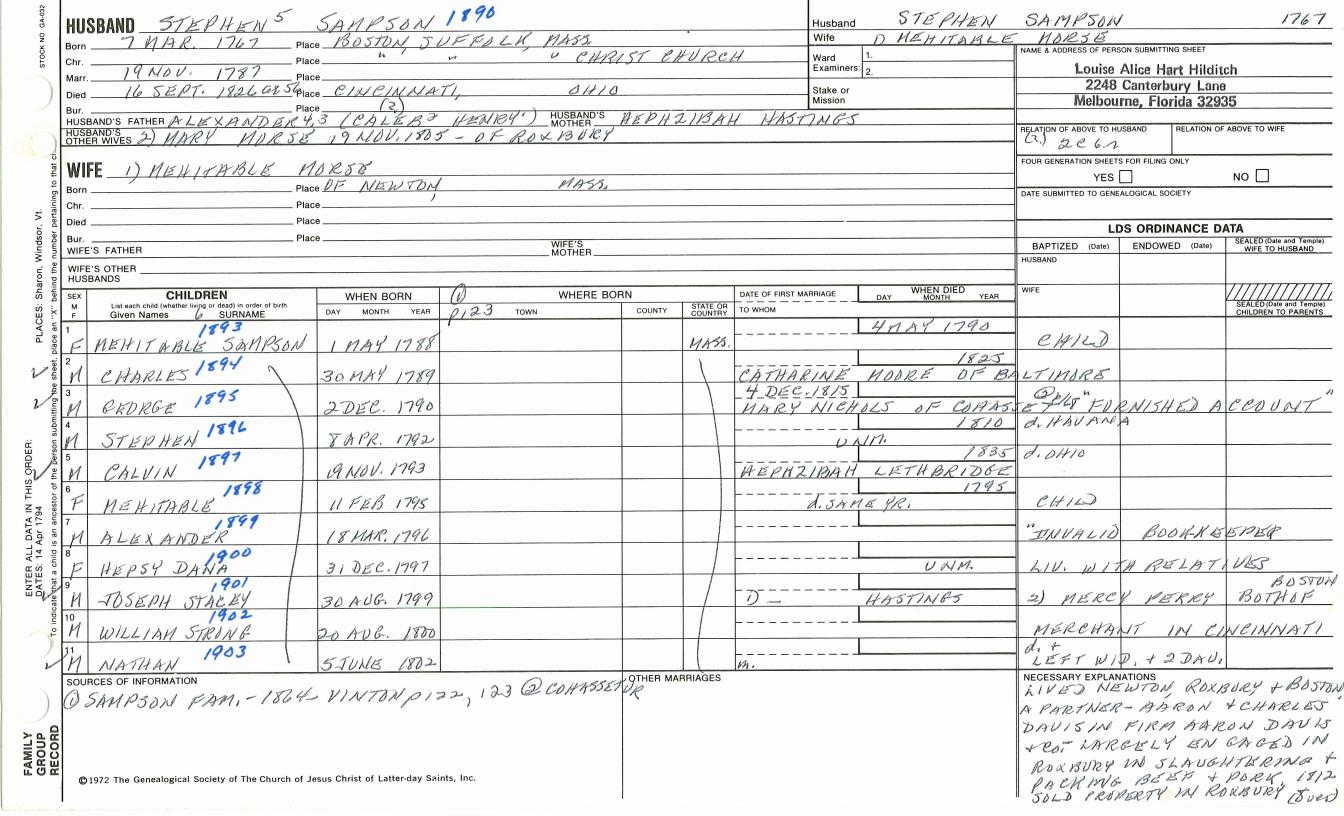 STOCK NO. GA-032
HUSBAND STEPHEN 5 SAMPSON 1890
Born 7 MAR. 1767 Place BOSTON, SUFFOLK, MASS
Chr. Place " " " CHRIST CHURCH
Marr. 19 NOV. 1787 Place
Died 16 SEPT. 1826 OR 56 Place CINCINNATI, OHIO
Bur. Place (2)
HUSBAND'S FATHER ALEXANDER 4,3 (CALEB 2 HENRY 1) HUSBAND'S MOTHER HEPHZIBAH HASTINGS
HUSBAND'S OTHER WIVES 2) MARY MORSE 19 NOV. 1805 - OF ROXBURY
WIFE 1) MEHITABLE MORSE
Born Place OF NEWTON, MASS.
Chr. Place
Died Place
Bur. Place
WIFE'S FATHER WIFE'S MOTHER
WIFE'S OTHER HUSBANDS
Husband STEPHEN SAMPSON 1767
Wife 1) MEHITABLE MORSE
Ward Examiners: 1. 2.
Stake or Mission
NAME & ADDRESS OF PERSON SUBMITTING SHEET
Louise Alice Hart Hilditch
2248 Canterbury Lane
Melbourne, Florida 32935
RELATION OF ABOVE TO HUSBAND RELATION OF ABOVE TO WIFE
2C6R
FOUR GENERATION SHEETS FOR FILING ONLY
YES NO
DATE SUBMITTED TO GENEALOGICAL SOCIETY
LDS ORDINANCE DATA
BAPTIZED (Date) ENDOWED (Date) SEALED (Date and Temple) WIFE TO HUSBAND
HUSBAND
WIFE
SEALED (Date and Temple) CHILDREN TO PARENTS
SEX M F CHILDREN WHEN BORN ① WHERE BORN DATE OF FIRST MARRIAGE WHEN DIED
List each child (whether living or dead) in order of birth DAY MONTH YEAR
Given Names 6 SURNAME DAY MONTH YEAR P123 TOWN COUNTY STATE OR COUNTRY TO WHOM
1 1893 4 MAY 1790
F MEHITABLE SAMPSON 1 MAY 1788 MASS. CHILD
2 1894 1825
M CHARLES 30 MAY 1789 CATHARINE MOORE OF BALTIMORE
3 1895 4 DEC. 1815
M GEORGE 2 DEC. 1790 MARY NICHOLS OF COHASSET "FURNISHED ACCOUNT"
4 1896 1810 d. HAVANA
M STEPHEN 8 APR. 1792 UNM.
5 1897 1835 d. OHIO
M CALVIN 19 NOV. 1793 HEPHZIBAH LETHBRIDGE
6 1898 1795
F MEHITABLE 11 FEB 1795 d. SAME YR. CHILD
7 1899
M ALEXANDER 18 MAR. 1796 "INVALID BOOKKEEPER
8 1900
F HEPSY DANA 31 DEC. 1797 UNM. LIV. WITH RELATIVES
9 1901 BOSTON
M JOSEPH STACEY 30 AUG. 1799 1) — HASTINGS 2) MERCY PERRY BOTH OF
10 1902
M WILLIAM STRONG 20 AUG. 1800 MERCHANT IN CINCINNATI
11 1903 d. +
M NATHAN 5 JUNE 1802 m. LEFT WID. + 2 DAU.
SOURCES OF INFORMATION
① SAMPSON FAM. - 1864 - VINTON p122, 123 ② COHASSET VR
OTHER MARRIAGES
NECESSARY EXPLANATIONS
LIVED NEWTON, ROXBURY + BOSTON,
A PARTNER - AARON + CHARLES
DAVIS IN FIRM AARON DAVIS
+ CO. LARGELY ENGAGED IN
ROXBURY IN SLAUGHTERING +
PACKING BEEF + PORK, 1812
SOLD PROPERTY IN ROXBURY (over)
©1972 The Genealogical Society of The Church of Jesus Christ of Latter-day Saints, Inc.
FAMILY GROUP RECORD
ENTER ALL DATA IN THIS ORDER:
DATES: 14 Apr 1794
PLACES: Sharon, Windsor, Vt.
To indicate that a child is an ancestor of the person submitting the sheet, place an "X" behind the number pertaining to that